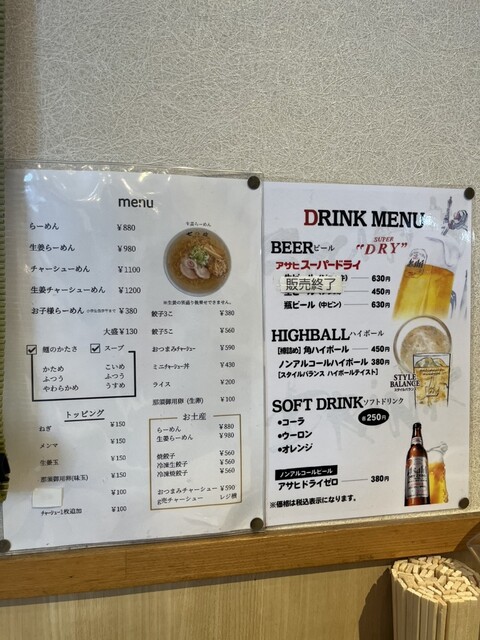 menu
らーめん ¥880
生姜らーめん ¥980
チャーシューめん ¥1100
生姜チャーシューめん ¥1200
お子様らーめん ¥380
大盛 ¥130
麺のかたさ
スープ
かため
ふつう
やわらかめ
こいめ
ふつう
うすめ
トッピング
ねぎ ¥150
メンマ ¥150
生姜玉 ¥150
那須御用卵(味玉) ¥150
¥100
チャーシュー1枚追加 ¥100
生姜らーめん
※生姜の別盛り致せできません。
餃子3こ ¥380
餃子5こ ¥560
おつまみチャーシュー ¥590
ミニチャーシュー丼 ¥430
ライス ¥200
那須御用卵(生卵) ¥100
お土産
らーめん ¥880
生姜らーめん ¥980
焼餃子 ¥560
冷凍生餃子 ¥560
冷凍焼餃子 ¥560
おつまみチャーシュー ¥590
g売チャーシュー レジ横
DRINK MENU
BEER ビール
SUPER
"DRY"
アサヒスーパードライ
630円
販売終了
450円
瓶ビール(中ビン) 630円
HIGHBALL ハイボール
[樽詰め]角ハイボール 450円
ノンアルコールハイボール 380円
[スタイルバランス ハイボールテイスト]
STYLE
BALANCE
SOFT DRINK ソフトドリンク
各250円
●コーラ
●ウーロン
●オレンジ
ノンアルコールビール
アサヒドライゼロ 380円
※価格は税込表示になります。
Asahi